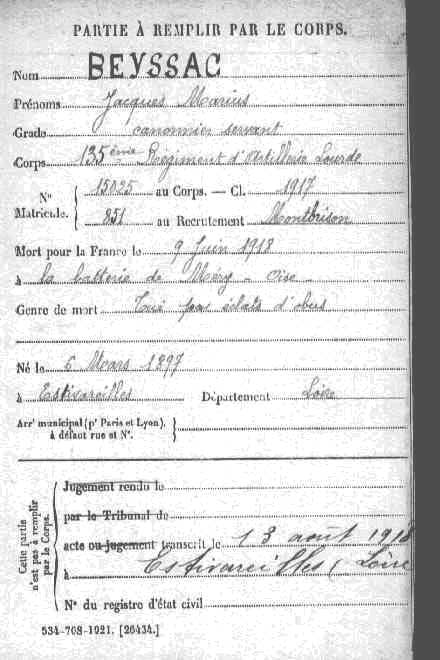 PARTIE À REMPLIR PAR LE CORPS.
Nom BEYSSAC
Prénoms Jacques Marius
Grade canonnier servant
Corps 135ème Régiment d'Artillerie Lourde
N° Matricule. 15025 au Corps. — Cl. 1917
851 au Recrutement Montbrison
Mort pour la France le 9 Juin 1918
à la batterie de Méry - Oise
Genre de mort Tué par éclats d'obus
Né le 6 Mars 1897
à Estivareilles Département Loire
Arr' municipal (p' Paris et Lyon),
à défaut rue et N°.
Cette partie n'est pas à remplir par le Corps.
Jugement rendu le
par le Tribunal de
acte ou jugement transcrit le 13 août 1918
à Estivareilles (Loire
N° du registre d'état civil
534-708-1921. [26434.]